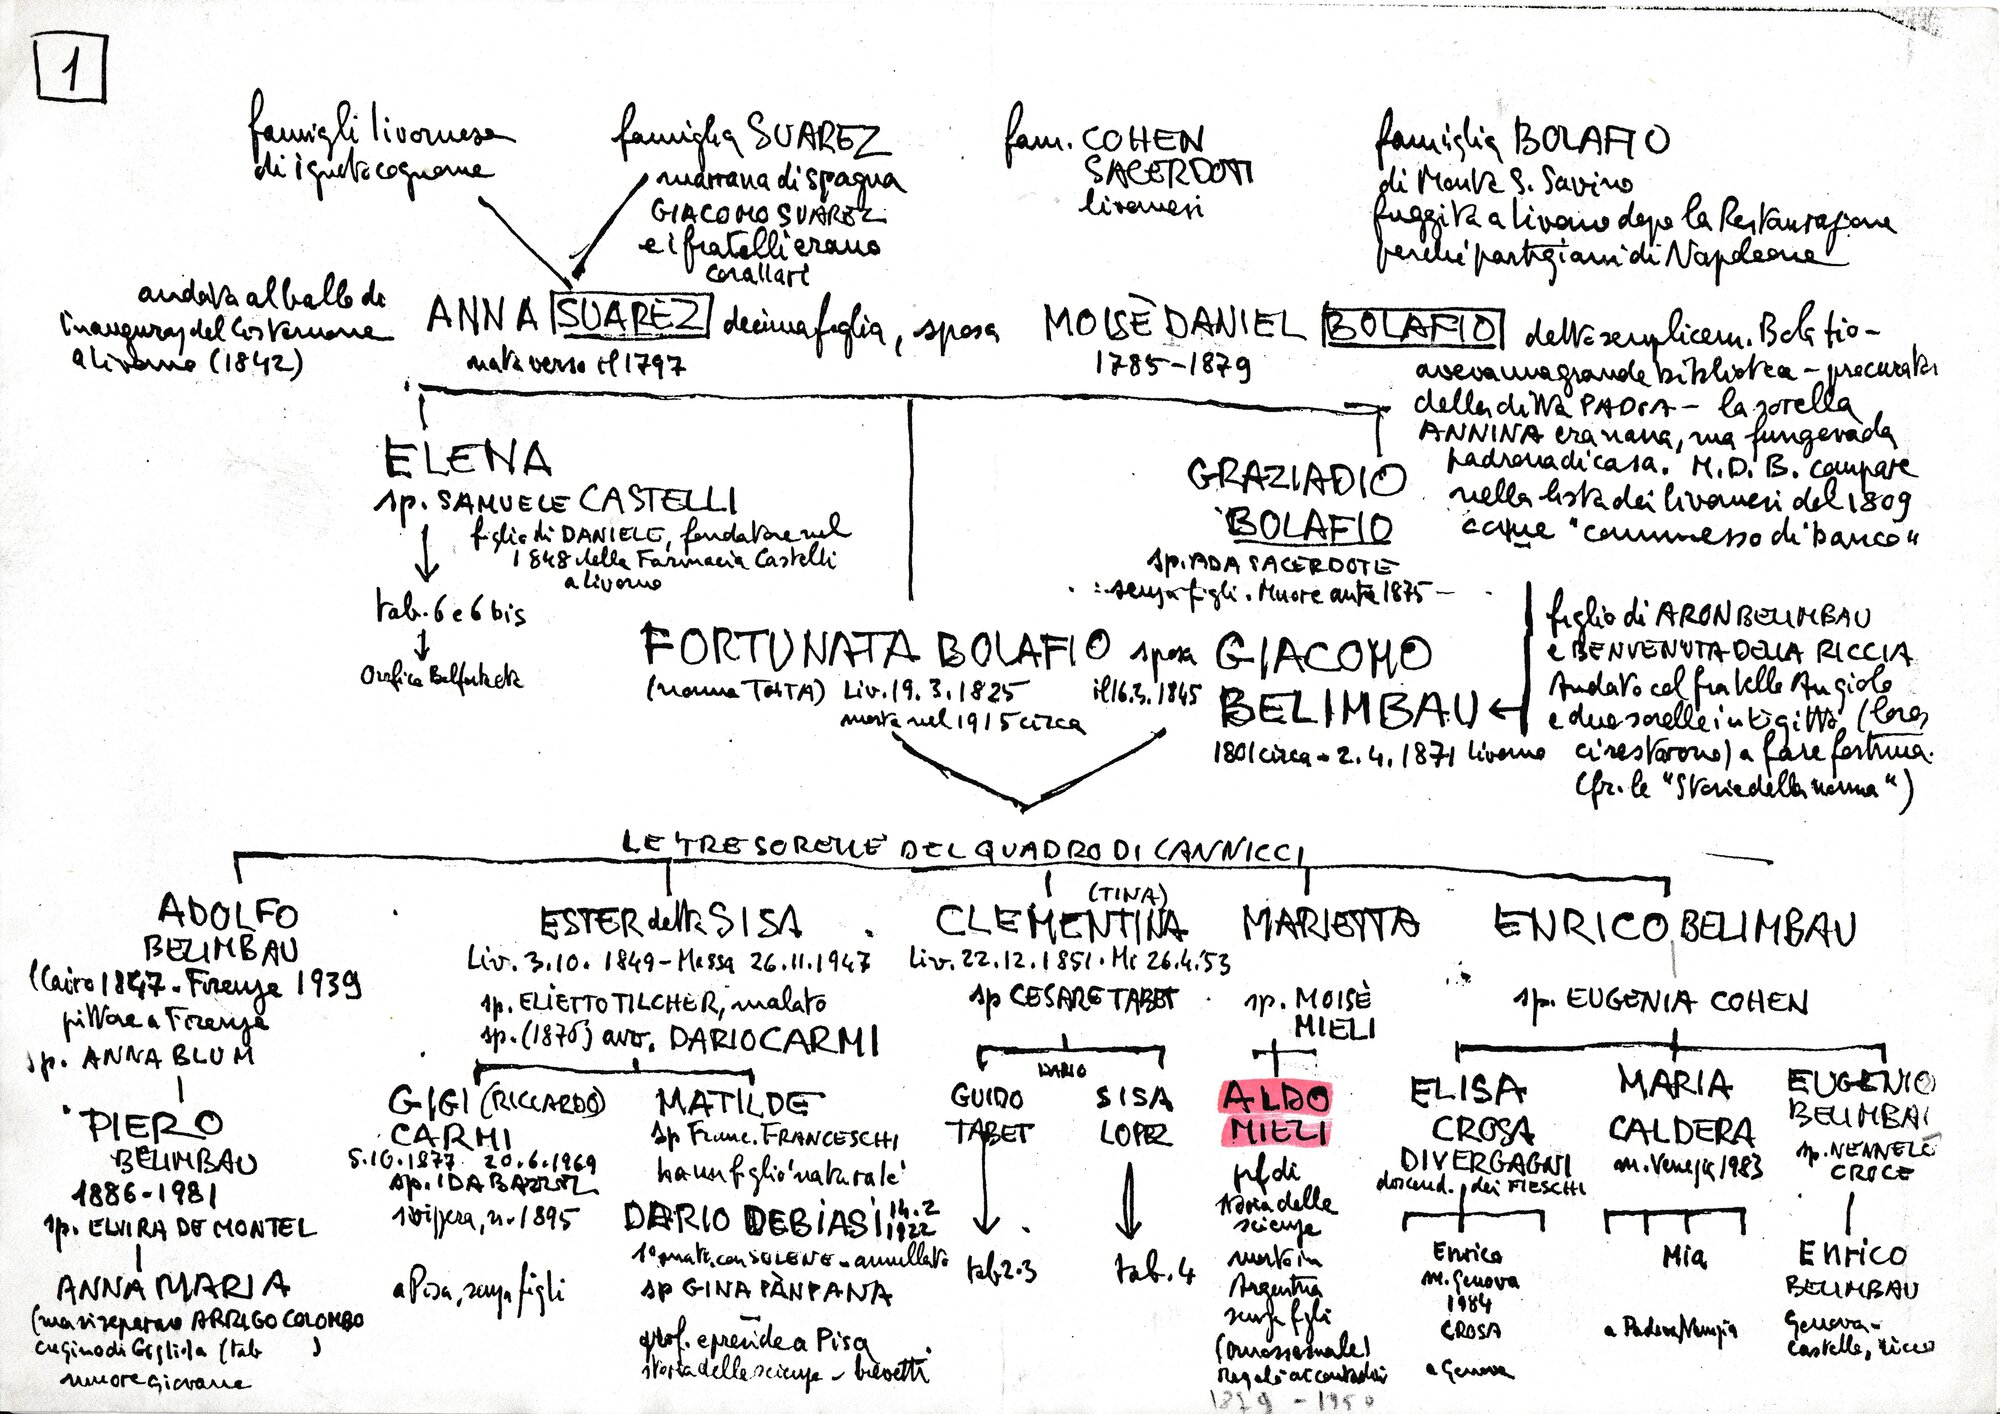 1
famigli livornese
di ignoto cognome
famiglia SUAREZ
marrana di Spagna
GIACOMO SUAREZ
e i fratelli erano
corallari
fam. COHEN
SACERDOTI
livornesi
famiglia BOLAFIO
di Monte S. Savino
fuggita a livorno dopo la Restaurazione
perché partigiani di Napoleone
andata al ballo di
inauguraz. del Cisternone
a livorno (1842)
ANNA SUAREZ decima figlia, sposa
nata verso il 1797
MOISÈ DANIEL BOLAFIO
1785-1879
detto semplicem. Bolafio-
aveva una grande biblioteca - procurata
della ditta PADOA - la sorella
ANNINA era nana, ma fungeva da
padrona di casa. M.D.B. compare
nella lista dei livornesi del 1809
come "commesso di banco"
ELENA
sp. SAMUELE CASTELLI
figlio di DANIELE, fondatore nel
1848 della Farmacia Castelli
a Livorno
tab. 6 e 6 bis
Orefice Belforte etc
GRAZIADIO
BOLAFIO
sp. ADA SACERDOTE
senza figli. Muore ante 1875 -
FORTUNATA BOLAFIO sposa
(nonna TATTA) Liv. 19.3.1825 il 16.3.1845
morta nel 1915 circa
GIACOMO
BELIMBAU
1801 circa - 2.4.1871 Livorno
figlio di ARON BELIMBAU
e BENVENUTA DELLA RICCIA
Andato col fratello Angiolo
e due sorelle in Egitto (loro
ci restarono) a fare fortuna.
(fr. le "Storie della nonna")
LE TRE SORELLE DEL QUADRO DI CANNICCI
ADOLFO
BELIMBAU
(Cairo 1847 - Firenze 1939
pittore a Firenze
sp. ANNA BLUM
PIERO
BELIMBAU
1886-1981
sp. ELVIRA DE MONTEL
ANNA MARIA
(ma si separano ARRIGO COLOMBO
cugino di Gigliola (tab )
muore giovane
ESTER detta SISA
Liv. 3.10.1849 - Massa 26.11.1947
sp. ELIETTO TILCHER, malato
sp. (1876) avv. DARIO CARMI
GIGI (RICCARDO)
CARMI
5.10.1877 20.6.1969
sp. IDA BARZEL
svizzera, n. 1895
a Pisa, senza figli
MATILDE
sp Franc. FRANCESCHI
ha un figlio 'naturale'
DARIO DEBIASI 14.2
1922
1° matr. con SOLENE - annullato
sp GINA PÀNPANA
prof. e preside a Pisa
storia delle scienze - brevetti
(TINA)
CLEMENTINA
Liv. 22.12.1851 - Mi 26.4.53
sp CESARE TABET
DARIO
GUIDO
TABET
tab 2.3
SISA
LOPEZ
tab. 4
MARIETTA
sp. MOISÈ
MIELI
ALDO
MIELI
prof. di
storia delle
scienze
morto in
Argentina
senza figli
(omosessuale)
regalò ai contadini
1879 - 1950
ENRICO BELIMBAU
sp. EUGENIA COHEN
ELISA
CROSA
DI VERGAGNI
discend. dei FIESCHI
Enrico
m. Genova
1984
CROSA
a Genova
MARIA
CALDERA
m. Venezia 1983
Mia
a Padova/Venezia
EUGENIO
BELIMBAU
sp. NENNELE
CROCE
ENRICO
BELIMBAU
Genova -